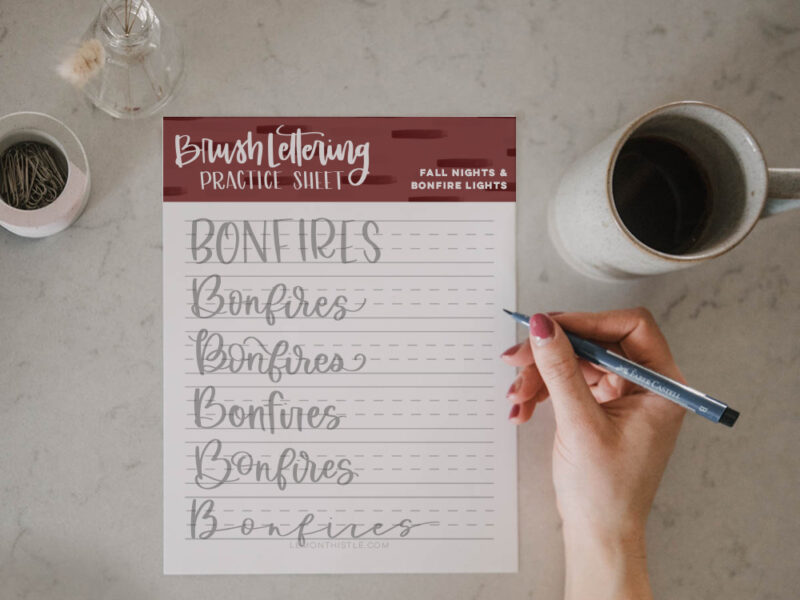 Brush Lettering
PRACTICE SHEET
FALL NIGHTS &
BONFIRE LIGHTS
BONFIRES
Bonfires
Bonfires
Bonfires
Bonfires
Bonfires
LEMONTHISTLE.COM
FABER-CASTELL
B